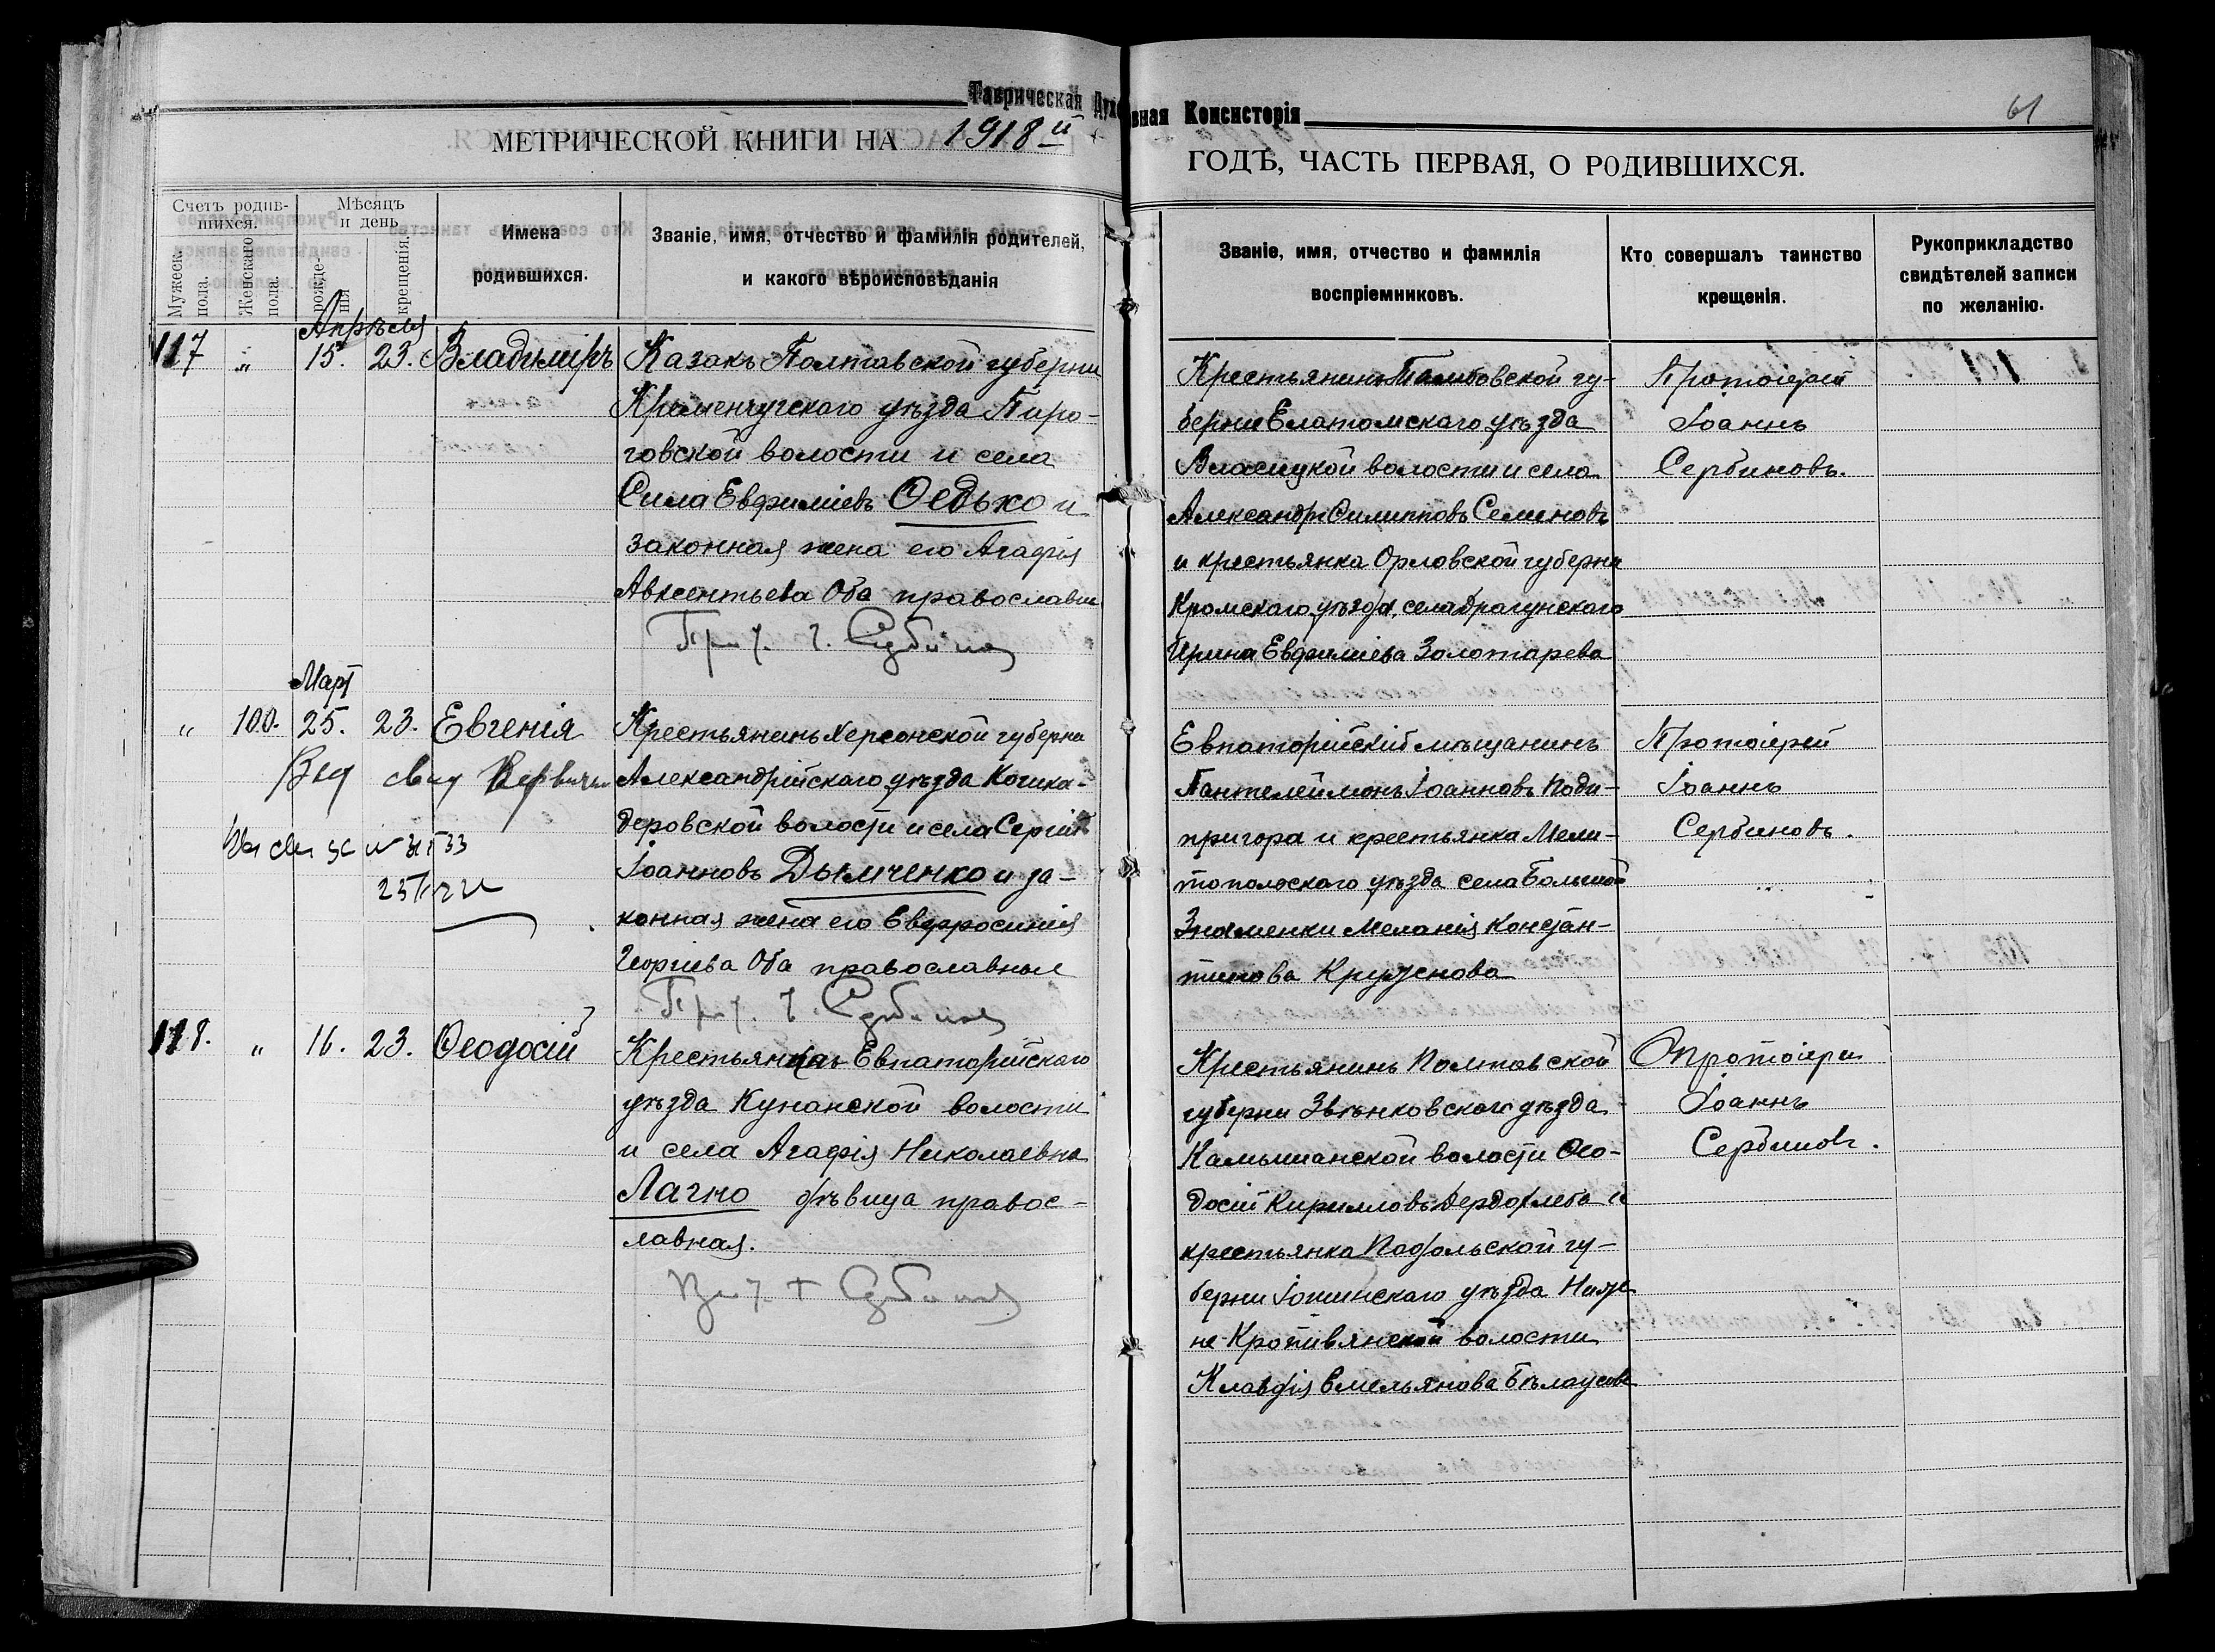 Таврическая Духовная Консисторія
61
МЕТРИЧЕСКОЙ КНИГИ НА 1918й
ГОДЪ, ЧАСТЬ ПЕРВАЯ, О РОДИВШИХСЯ.
Счетъ родив-
шихся.
Мужеск.
пола.
Женскаго
пола.
Мѣсяцъ
и день
рожде-
нія
крещенія.
Имена
родившихся.
Званіе, имя, отчество и фамилія родителей,
и какого вѣроисповѣданія
Званіе, имя, отчество и фамилія
воспріемниковъ.
Кто совершалъ таинство
крещенія.
Рукоприкладство
свидѣтелей записи
по желанію.
Апрѣля
117 " 15. 23. Владиміръ
Казакъ Полтавской губерніи
Кременчугскаго уѣзда Пиро-
говской волости и села
Сила Евфиміевъ Ѳедько и
законная жена его Агафія
Авксентьева Оба православные
Прот. І. Сербинов
Крестьянинъ Тамбовской гу-
берніи Елатомскаго уѣзда
волости и села
Александръ Филипповъ Семеновъ
и крестьянка Орловской губерніи
Кромскаго уѣзда, села Драгунскаго
Ирина Евфиміева Золотарева
Протоіерей
Іоаннъ
Сербиновъ.
Март
" 100. 25. 23. Евгенія
Крестьянинъ Херсонской губерніи
Александрійскаго уѣзда
деровской волости и села Сергій
Іоанновъ Дымченко и за-
конная жена его Евфросинія
Георгіева Оба православные
Прот. І. Сербинов
Евпаторійскій мѣщанинъ
Пантелеймонъ Іоанновъ Поди-
пригора и крестьянка Мели-
топольскаго уѣзда села Большой
Знаменки Меланія Констан-
тинова
Протоіерей
Іоаннъ
Сербиновъ.
118. " 16. 23. Ѳеодосій
Крестьянка Евпаторійскаго
уѣзда Кунанской волости
и села Агафія Николаевна
Лагно дѣвица правос-
лавная.
Крестьянинъ Полтавской
губерніи Зѣньковскаго уѣзда
Камышанской волости Ѳео-
досій Кирилловъ и
крестьянка Подольской гу-
берніи уѣзда Ниж-
не Кропивянской волости
Клавдія Емельянова Бѣлаусова
Протоіерей
Іоаннъ
Сербиновъ.